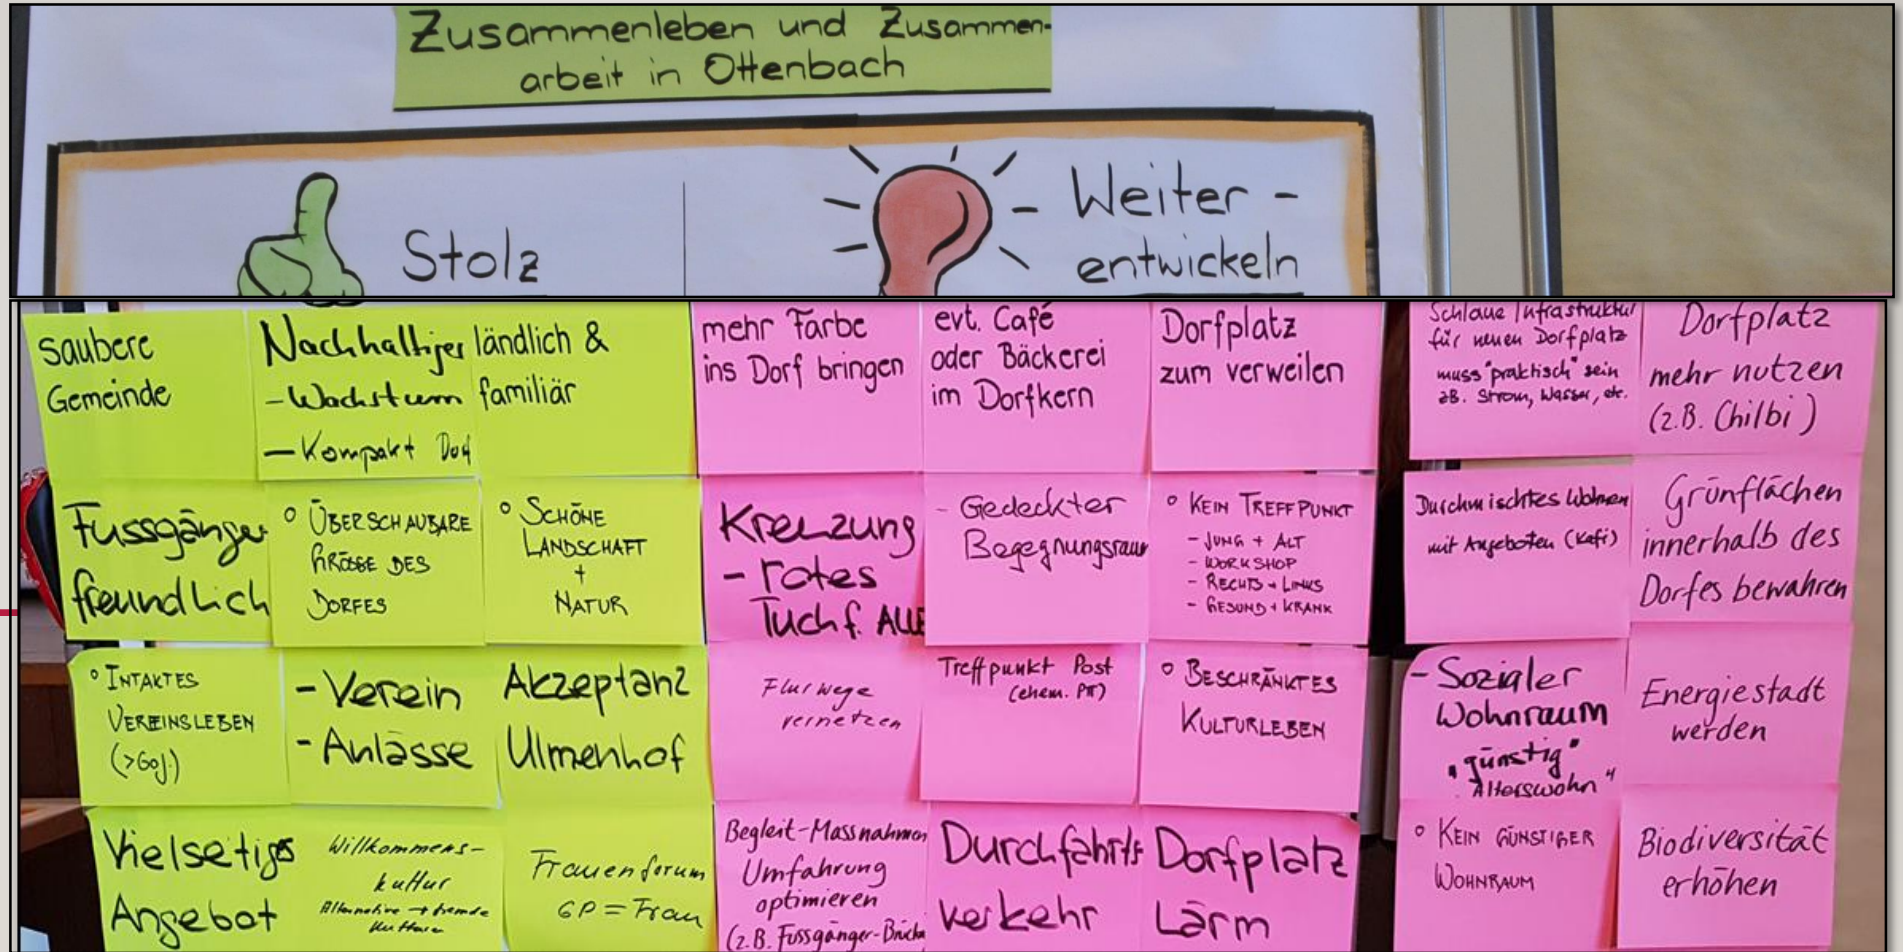 Zusammenleben und Zusammen-
arbeit in Ottenbach
Stolz
Weiter -
entwickeln
saubere
Gemeinde
Nachhaltiger
- Wachstum
- Kompakt Dorf
ländlich &
familiär
mehr Farbe
ins Dorf bringen
evt. Café
oder Bäckerei
im Dorfkern
Dorfplatz
zum verweilen
Schlaue Infrastruktur
für neuen Dorfplatz
muss "praktisch" sein
zB. Strom, Wasser, etc.
Dorfplatz
mehr nutzen
(z.B. Chilbi)
Fussgänger
freundlich
° ÜBERSCHAUBARE
GRÖSSE DES
DORFES
° SCHÖNE
LANDSCHAFT
+
NATUR
Kreuzung
- rotes
Tuch f. ALLE
- Gedeckter
Begegnungsraum
° KEIN TREFFPUNKT
- JUNG + ALT
- WORKSHOP
- RECHTS + LINKS
- GESUND + KRANK
Durchmischtes Wohnen
mit Angeboten (Kafi)
Grünflächen
innerhalb des
Dorfes bewahren
° INTAKTES
VEREINSLEBEN
(>60j.)
- Verein
- Anlässe
Akzeptanz
Ulmenhof
Flurwege
vernetzen
Treffpunkt Post
(ehem. PTT)
° BESCHRÄNKTES
KULTURLEBEN
- Sozialer
Wohnraum
"günstig"
Alterswohn"
Energiestadt
werden
Vielseitiges
Angebot
Willkommens-
kultur
Alternative → fremde
Kulturen
Frauenforum
GP = Frau
Begleit-Massnahmen
Umfahrung
optimieren
(z.B. Fussgänger-Brücke
Durchfahrts
verkehr
Dorfplatz
Lärm
° KEIN GÜNSTIGER
WOHNRAUM
Biodiversität
erhöhen